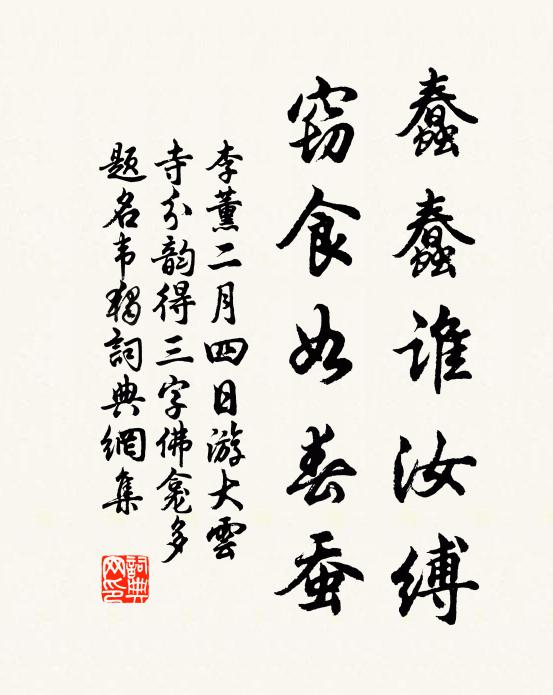 蠢蠢谁汝縛
窃食如春蚕
李薰二月四日游大雲
寺分韵得三字佛龛多
题名韦獨詞典網集
詞典网印